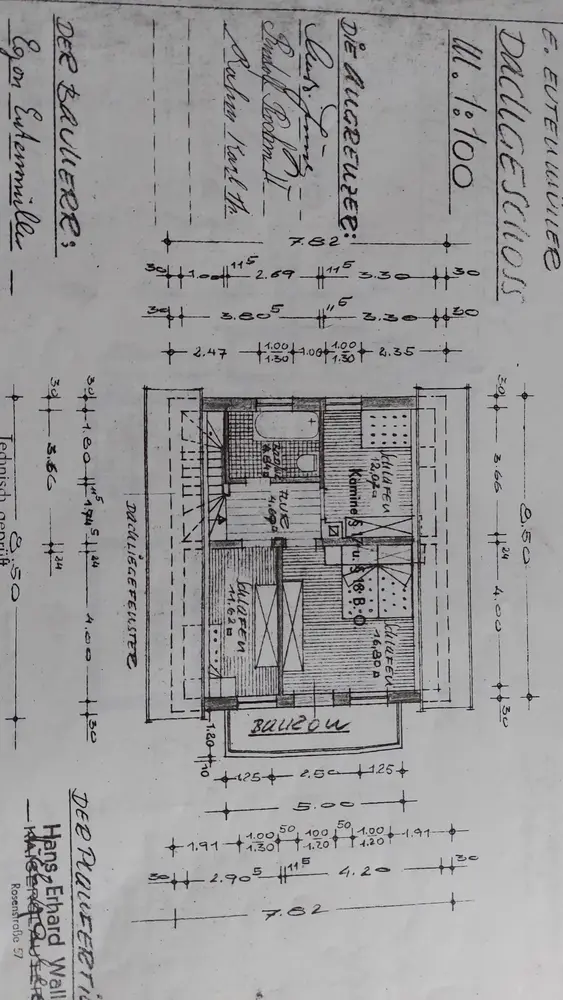 E. EUTENMÜLLER
DACHGESCHOSS
M. 1:100
DIE ANGRENZER:
Rudolf
Rahm Karl
DER BAUHERR:
Egon Eutenmüller
7.82
30 1.00 11⁵ 2.69 11⁵ 3.30 30
30 3.80⁵ 11⁵ 3.30 30
2.47 1.00 1.30 1.00 1.00 1.30 2.35
8.50
30 3.66 24 4.00 30
SCHLAFEN
12,07
Kamine § 17 u. § 18 B.O.
FLUR
4,69
SCHLAFEN
16,80
SCHLAFEN
11,62
BALKON
DACHLIEGEFENSTER
30 1.80 11⁵ 1.74⁵ 4.00 30
30 3.60 24
8.50
Technisch geprüft
1.20 10
1.25 2.50 1.25
5.00
1.91 1.00 1.30 50 1.00 1.20 50 1.00 1.20 1.91
30 2.90⁵ 11⁵ 4.20 30
7.82
DER PLANFERTI
Hans Erhard Wall
Rosenstraße 57